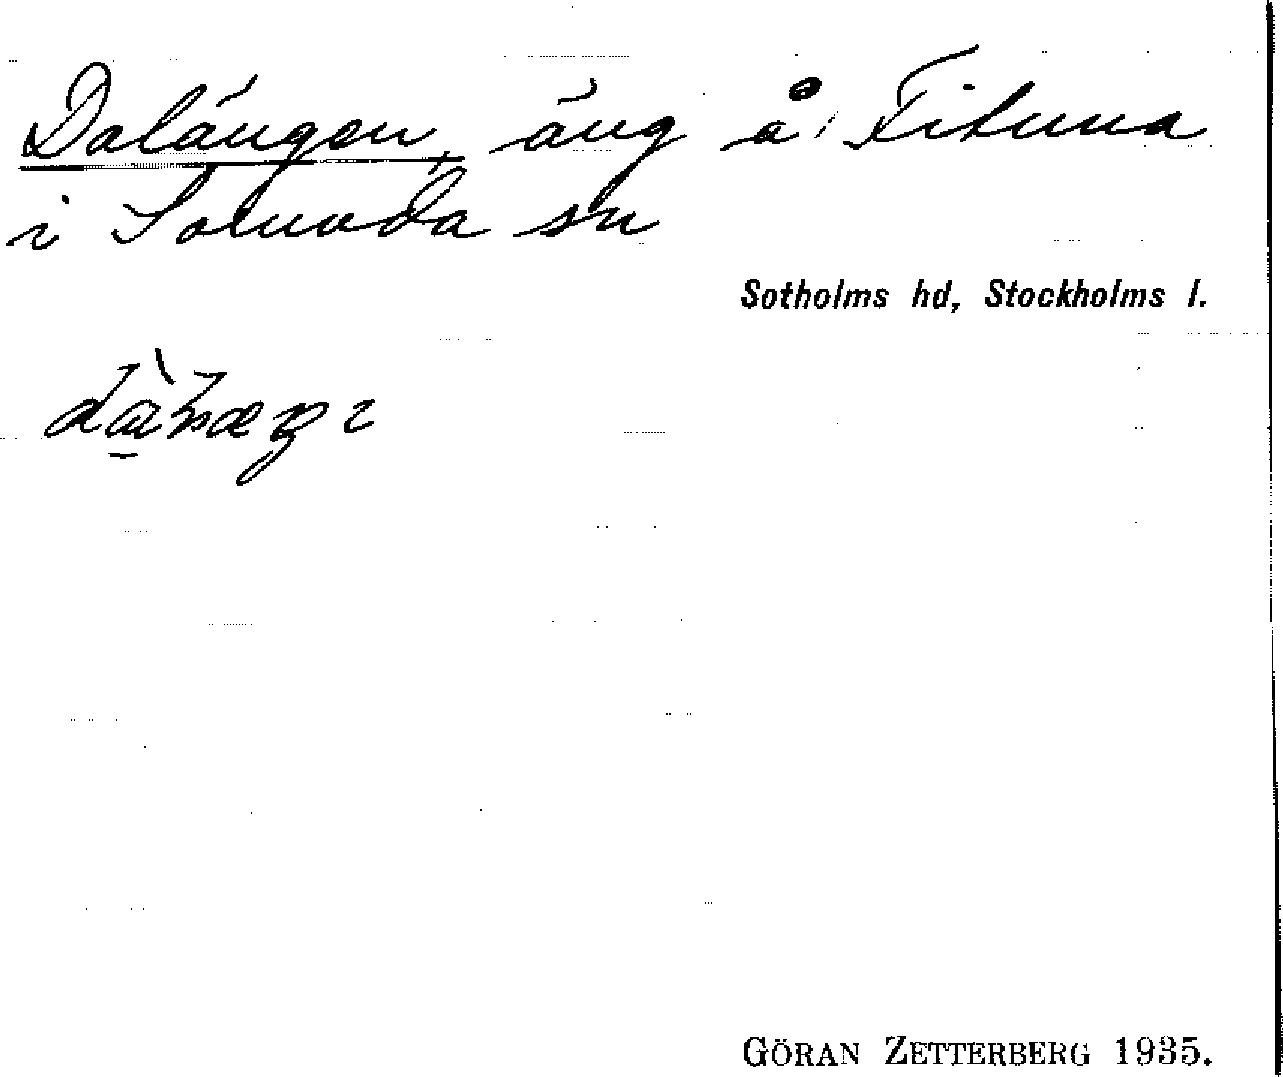 Dalängen, äng å Fituna
i Sorunda sn
Sotholms hd, Stockholms l.
GÖRAN ZETTERBERG 1935.